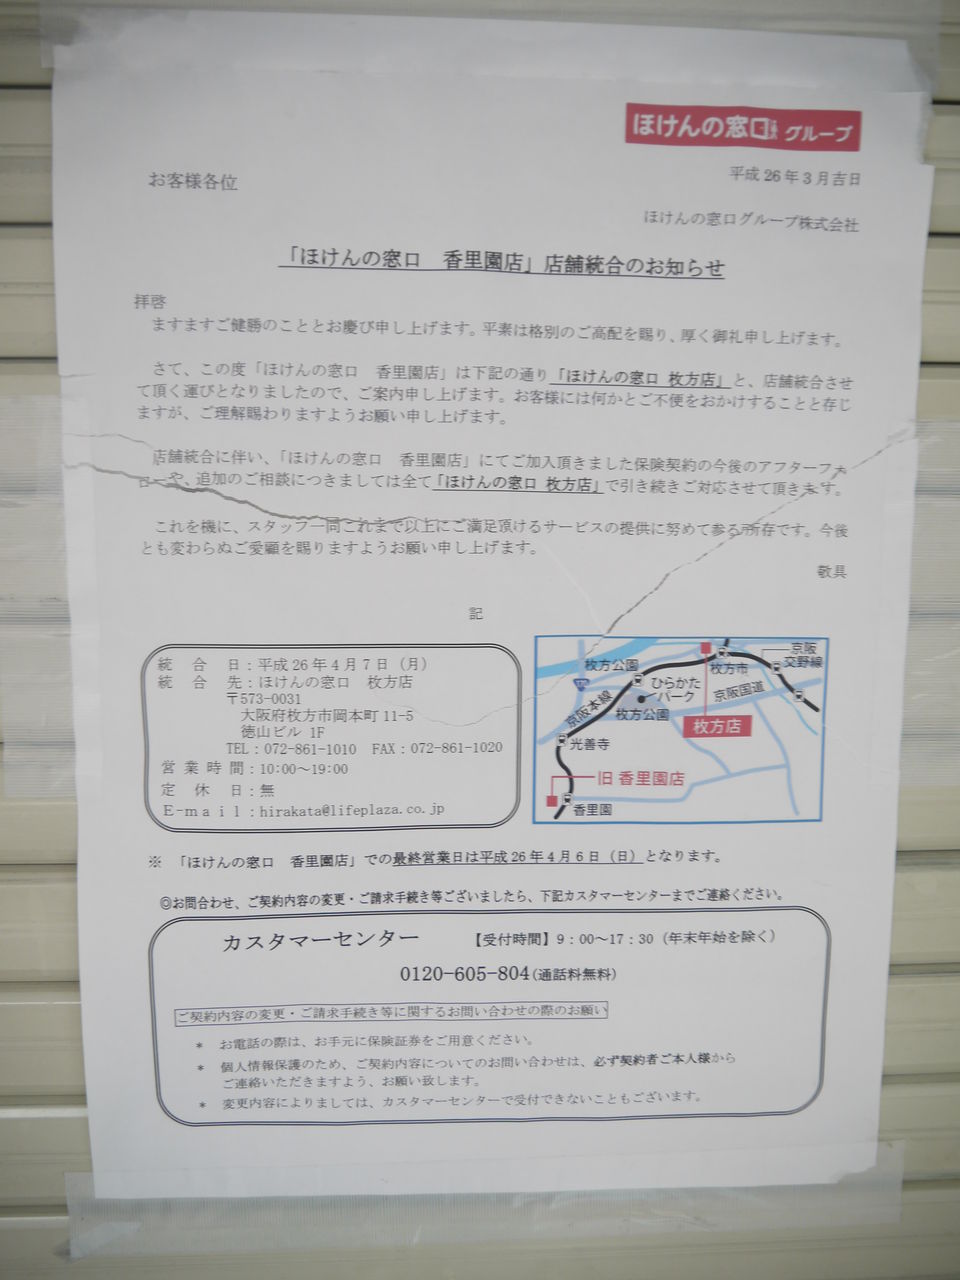 ほけんの窓口グループ
平成26年3月吉日
お客様各位
ほけんの窓口グループ株式会社
「ほけんの窓口　香里園店」店舗統合のお知らせ
拝啓
ますますご健勝のこととお慶び申し上げます。平素は格別のご高配を賜り、厚く御礼申し上げます。
さて、この度「ほけんの窓口　香里園店」は下記の通り「ほけんの窓口 枚方店」と、店舗統合させ
て頂く運びとなりましたので、ご案内申し上げます。お客様には何かとご不便をおかけすることと存じ
ますが、ご理解賜わりますようお願い申し上げます。
店舗統合に伴い、「ほけんの窓口　香里園店」にてご加入頂きました保険契約の今後のアフターフォ
ローや、追加のご相談につきましては全て「ほけんの窓口 枚方店」で引き続きご対応させて頂きます。
これを機に、スタッフ一同これまで以上にご満足頂けるサービスの提供に努めて参る所存です。今後
とも変わらぬご愛顧を賜りますようお願い申し上げます。
敬具
記
統　合　日：平成26年4月7日（月）
統　合　先：ほけんの窓口　枚方店
〒573-0031
大阪府枚方市岡本町11-5
徳山ビル 1F
TEL：072-861-1010　FAX：072-861-1020
営業時間：10:00～19:00
定　休　日：無
E-mail：hirakata@lifeplaza.co.jp
京阪
交野線
枚方公園
枚方市
ひらかた
パーク
京阪国道
京阪本線
枚方公園
枚方店
光善寺
旧 香里園店
香里園
※　「ほけんの窓口　香里園店」での最終営業日は平成26年4月6日（日）となります。
◎お問合わせ、ご契約内容の変更・ご請求手続き等ございましたら、下記カスタマーセンターまでご連絡ください。
カスタマーセンター　【受付時間】9：00～17：30（年末年始を除く）
0120-605-804(通話料無料)
ご契約内容の変更・ご請求手続き等に関するお問い合わせの際のお願い
＊　お電話の際は、お手元に保険証券をご用意ください。
＊　個人情報保護のため、ご契約内容についてのお問い合わせは、必ず契約者ご本人様から
ご連絡いただきますよう、お願い致します。
＊　変更内容によりましては、カスタマーセンターで受付できないこともございます。